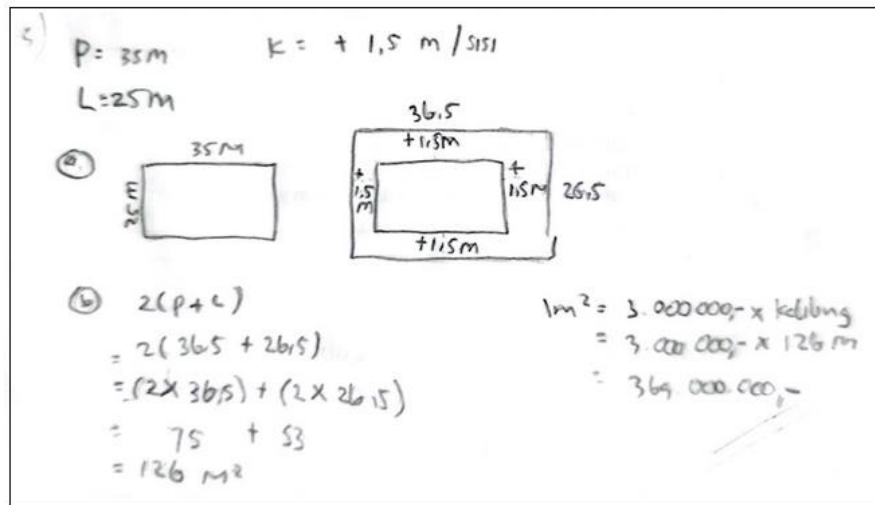 5)
P = 35 M
K = + 1,5 m / sisi
L = 25 M
a.
35 M
25 M
36,5
+1,5m
+ 1,5 m
+ 1,5 M
26,5
+1,5m
b 2(P+L)
= 2(36,5 + 26,5)
= (2 x 36,5) + (2 x 26,5)
= 75 + 53
= 126 M²
1m² = 3.000000,- x keliling
= 3.000 000,- x 126 m
= 369.000.000,-